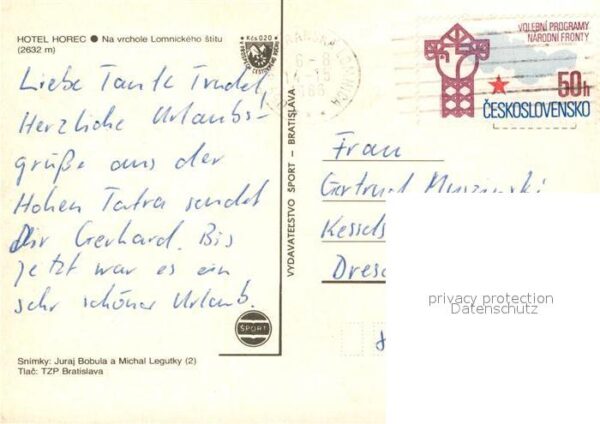 HOTEL HOREC ● Na vrchole Lomnického štítu
(2632 m)
Kčs 0,20
Liebe Tante Trudel,
Herzliche Urlaubs-
grüße aus der
Hohen Tatra sendet
Dir Gerhard. Bis
jetzt war es ein
sehr schöner Urlaub.
ŠPORT
Snímky: Juraj Bobula a Michal Legutky (2)
Tlač: TZP Bratislava
VYDAVATEĽSTVO ŠPORT – BRATISLAVA
VOLEBNÍ PROGRAMY
NÁRODNÍ FRONTY
50h
ČESKOSLOVENSKO
Frau
Gertrud
Kessels
Dresd
privacy protection
Datenschutz